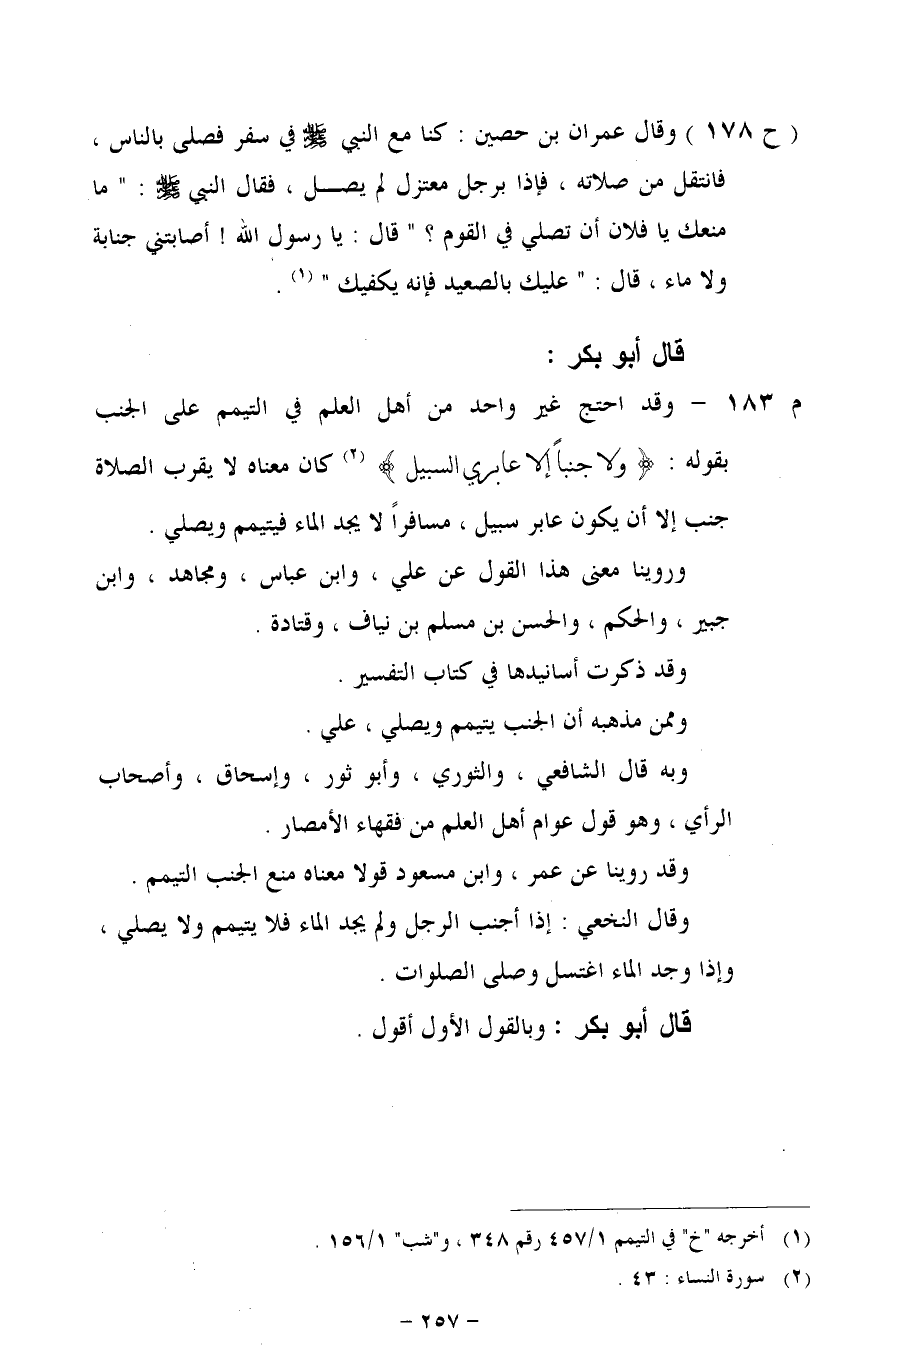 ( ح ١٧٨ ) وقال عمران بن حصين : كنا مع النبي ﷺ في سفر فصلى بالناس ،
فانتقل من صلاته ، فإذا برجل معتزل لم يصل ، فقال النبي ﷺ : " ما
منعك يا فلان أن تصلي في القوم ؟ " قال : يا رسول الله ! أصابتني جنابة
ولا ماء ، قال : " عليك بالصعيد فإنه يكفيك " (١) .
قال أبو بكر :
م ١٨٣ – وقد احتج غير واحد من أهل العلم في التيمم على الجنب
بقوله : ﴿ ولا جنباً إلا عابري السبيل ﴾ (٢) كان معناه لا يقرب الصلاة
جنب إلا أن يكون عابر سبيل ، مسافراً لا يجد الماء فيتيمم ويصلي .
وروينا معنى هذا القول عن علي ، وابن عباس ، ومجاهد ، وابن
جبير ، والحكم ، والحسن بن مسلم بن نياف ، وقتادة .
وقد ذكرت أسانيدها في كتاب التفسير .
وممن مذهبه أن الجنب يتيمم ويصلي ، علي .
وبه قال الشافعي ، والثوري ، وأبو ثور ، وإسحاق ، وأصحاب
الرأي ، وهو قول عوام أهل العلم من فقهاء الأمصار .
وقد روينا عن عمر ، وابن مسعود قولا معناه منع الجنب التيمم .
وقال النخعي : إذا أجنب الرجل ولم يجد الماء فلا يتيمم ولا يصلي ،
وإذا وجد الماء اغتسل وصلى الصلوات .
قال أبو بكر : وبالقول الأول أقول .
(١) أخرجه "خ" في التيمم ٤٥٧/١ رقم ٣٤٨ ، و"شب" ١٥٦/١ .
(٢) سورة النساء : ٤٣ .
– ٢٥٧ –